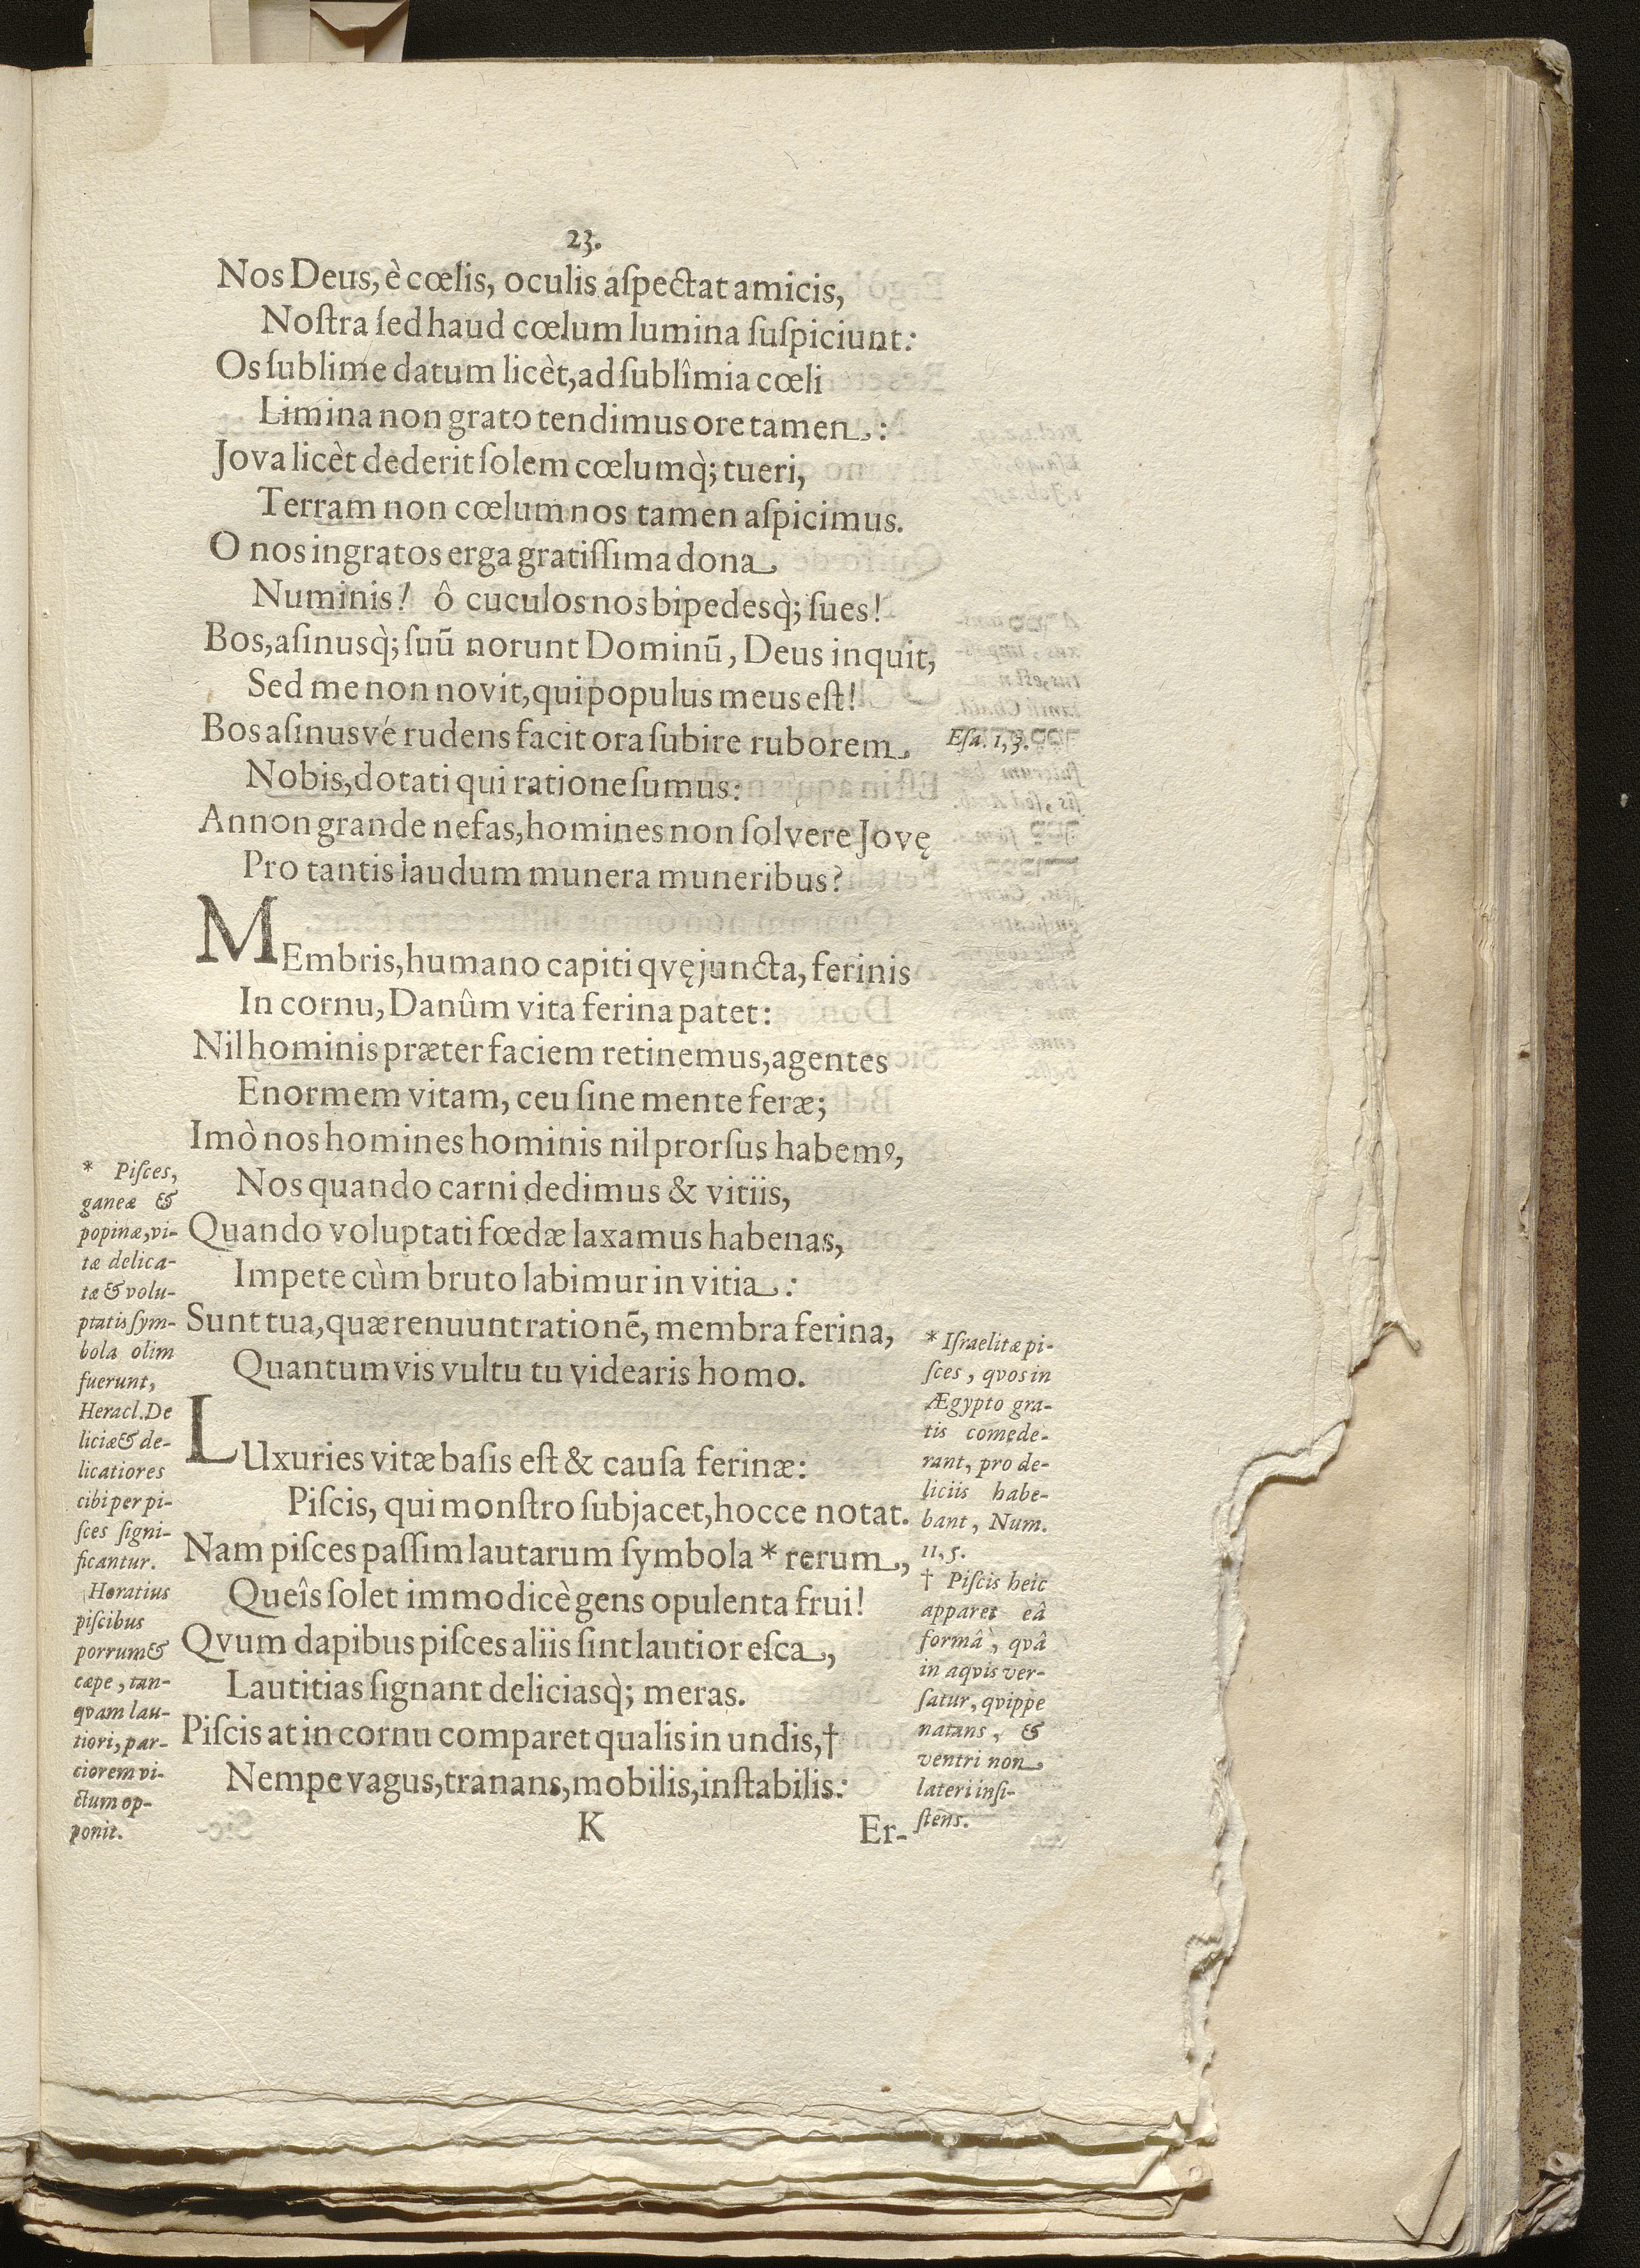 23.
Nos Deus, è cœlis, oculis aſpectat amicis,
Noſtra ſed haud cœlum lumina ſuſpiciunt:
Os ſublime datum licèt, ad ſublîmia cœli
Limina non grato tendimus ore tamen:
Jova licèt dederit ſolem cœlumq̀; tueri,
Terram non cœlum nos tamen aſpicimus.
O nos ingratos erga gratiſſima dona
Numinis! ô cuculos nos bipedesq̀; ſues!
Bos, aſinusq̀; ſuū norunt Dominū, Deus inquit,
Sed me non novit, qui populus meus eſt!
Bos aſinusvé rudens facit ora ſubire ruborem
Eſa. 1, 3.
Nobis, dotati qui ratione ſumus:
Annon grande nefas, homines non ſolvere Jovę
Pro tantis laudum munera muneribus?
MEmbris, humano capiti qvę juncta, ferinis
In cornu, Danûm vita ferina patet:
Nil hominis præter faciem retinemus, agentes
Enormem vitam, ceu ſine mente feræ;
Imò nos homines hominis nil prorſus habemꝰ,
Nos quando carni dedimus & vitiis,
Quando voluptati fœdæ laxamus habenas,
Impete cùm bruto labimur in vitia:
Sunt tua, quæ renuunt rationē, membra ferina,
Quantumvis vultu tu videaris homo.
LUxuries vitæ baſis eſt & cauſa ferinæ:
Piſcis, qui monſtro ſubjacet, hocce notat.
Nam piſces paſſim lautarum ſymbola * rerum,
Queîs ſolet immodicè gens opulenta frui!
Qvum dapibus piſces aliis ſint lautior eſca,
Lautitias ſignant deliciasq̀; meras.
Piſcis at in cornu comparet qualis in undis, †
Nempe vagus, tranans, mobilis, inſtabilis:
K
Er-
* Piſces,
ganeæ &
popinæ, vi-
tæ delica-
tæ & volu-
ptatis ſym-
bola olim
fuerunt,
Heracl. De
liciæ & de-
licatiores
cibi per pi-
ſces ſigni-
ficantur.
Horatius
piſcibus
porrum &
cæpe, tan-
qvam lau-
tiori, par-
ciorem vi-
ctum op-
ponit.
* Iſraelitæ pi-
ſces, qvos in
Ægypto gra-
tis comede-
rant, pro de-
liciis habe-
bant, Num.
11, 5.
† Piſcis heic
apparet eâ
formâ, qvâ
in aqvis ver-
ſatur, qvippe
natans, &
ventri non
lateri inſi-
ſtens.